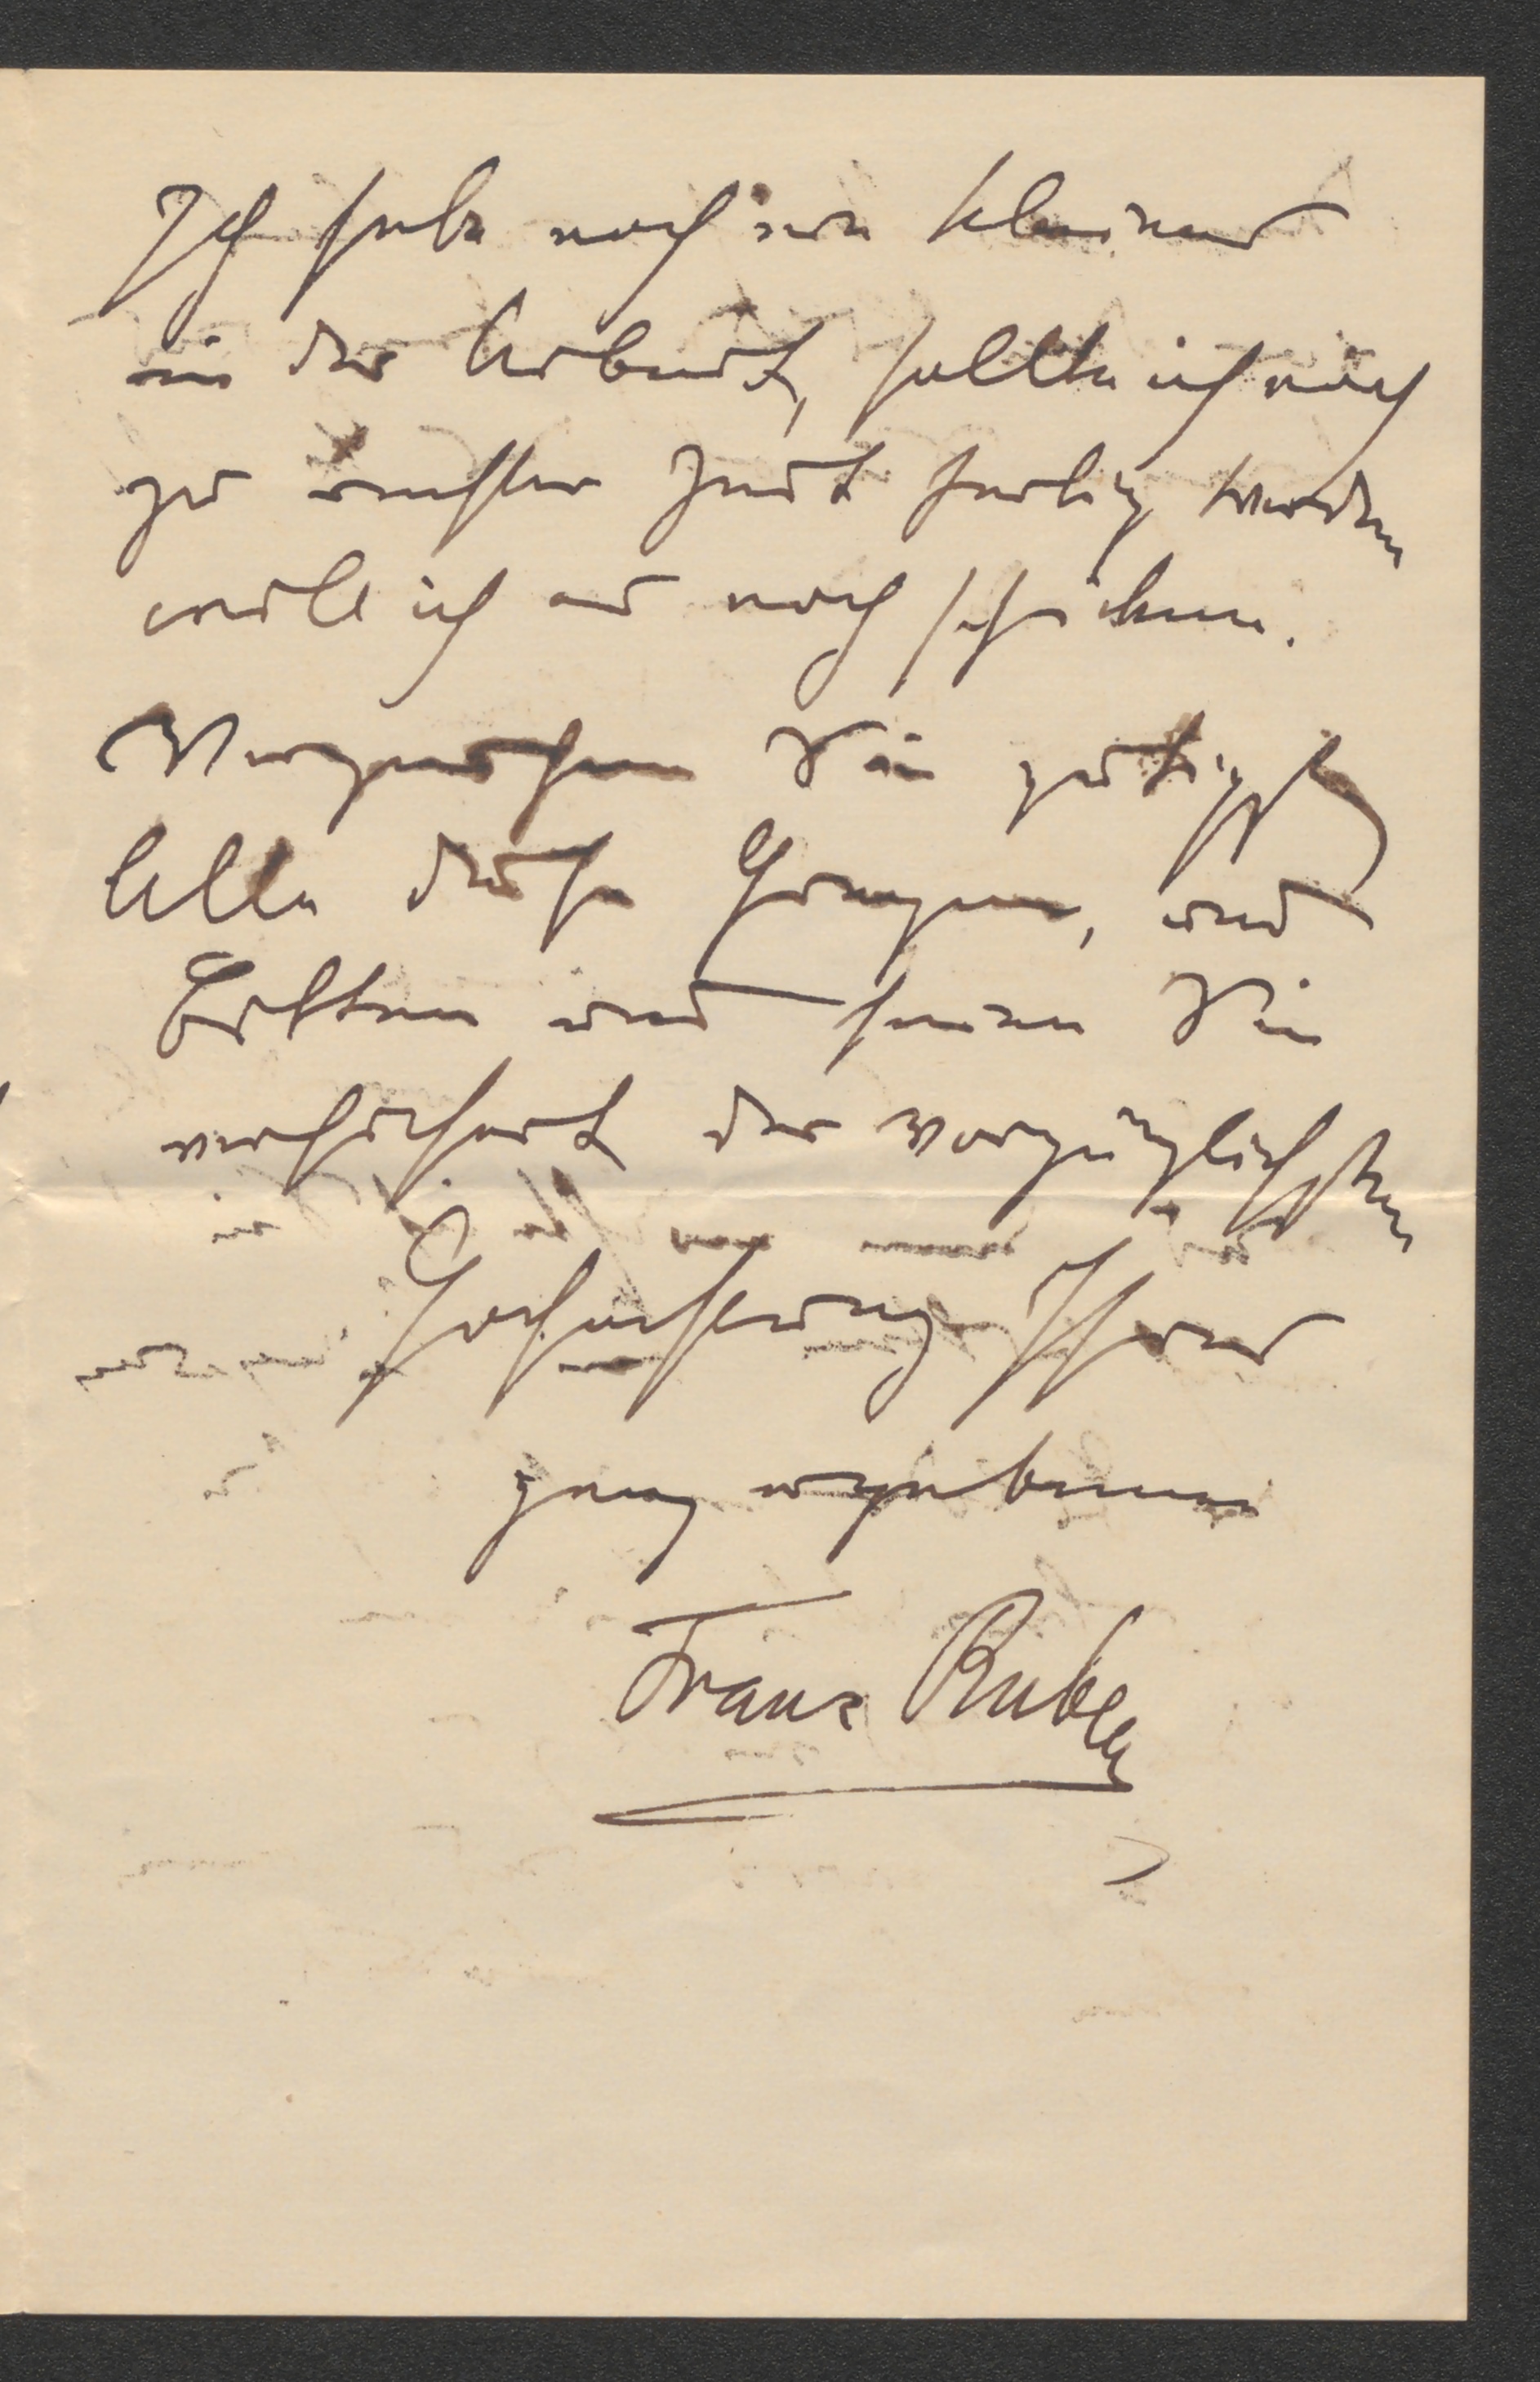 Ich habe noch ein kleines
in der Arbeit, sollte ich noch
zu rechter Zeit fertig werden
will ich es noch schicken.
Verzeihen Sie gütigst,
Alle diese Fragen, und
Bitten und seien Sie
versichert der vorzüglichsten
Hochachtung Ihres
ganz ergebenen
Franz